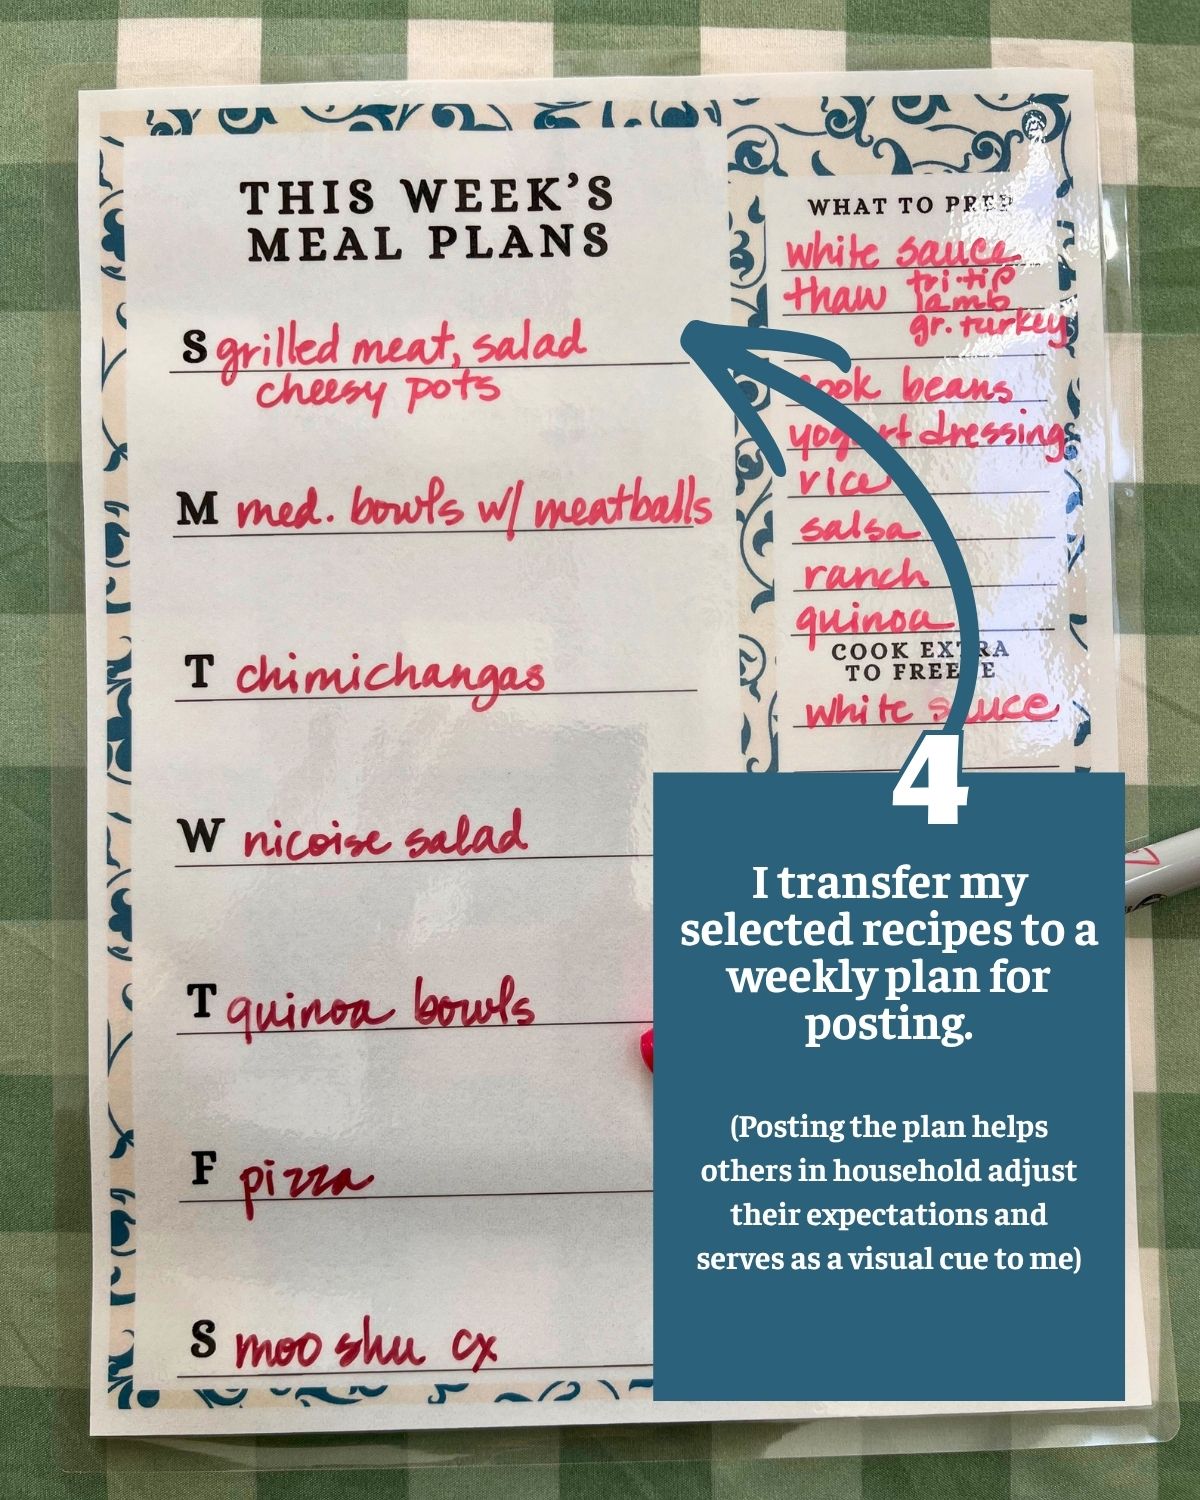 THIS WEEK'S
MEAL PLANS
S grilled meat, salad
cheesy pots
M med. bowls w/ meatballs
T chimichangas
W nicoise salad
T quinoa bowls
F pizza
S moo shu cx
WHAT TO PREP
white sauce
thaw tri-tip
lamb
gr. turkey
cook beans
yogurt dressing
rice
salsa
ranch
quinoa
COOK EXTRA
TO FREEZE
white sauce
4
I transfer my
selected recipes to a
weekly plan for
posting.
(Posting the plan helps
others in household adjust
their expectations and
serves as a visual cue to me)